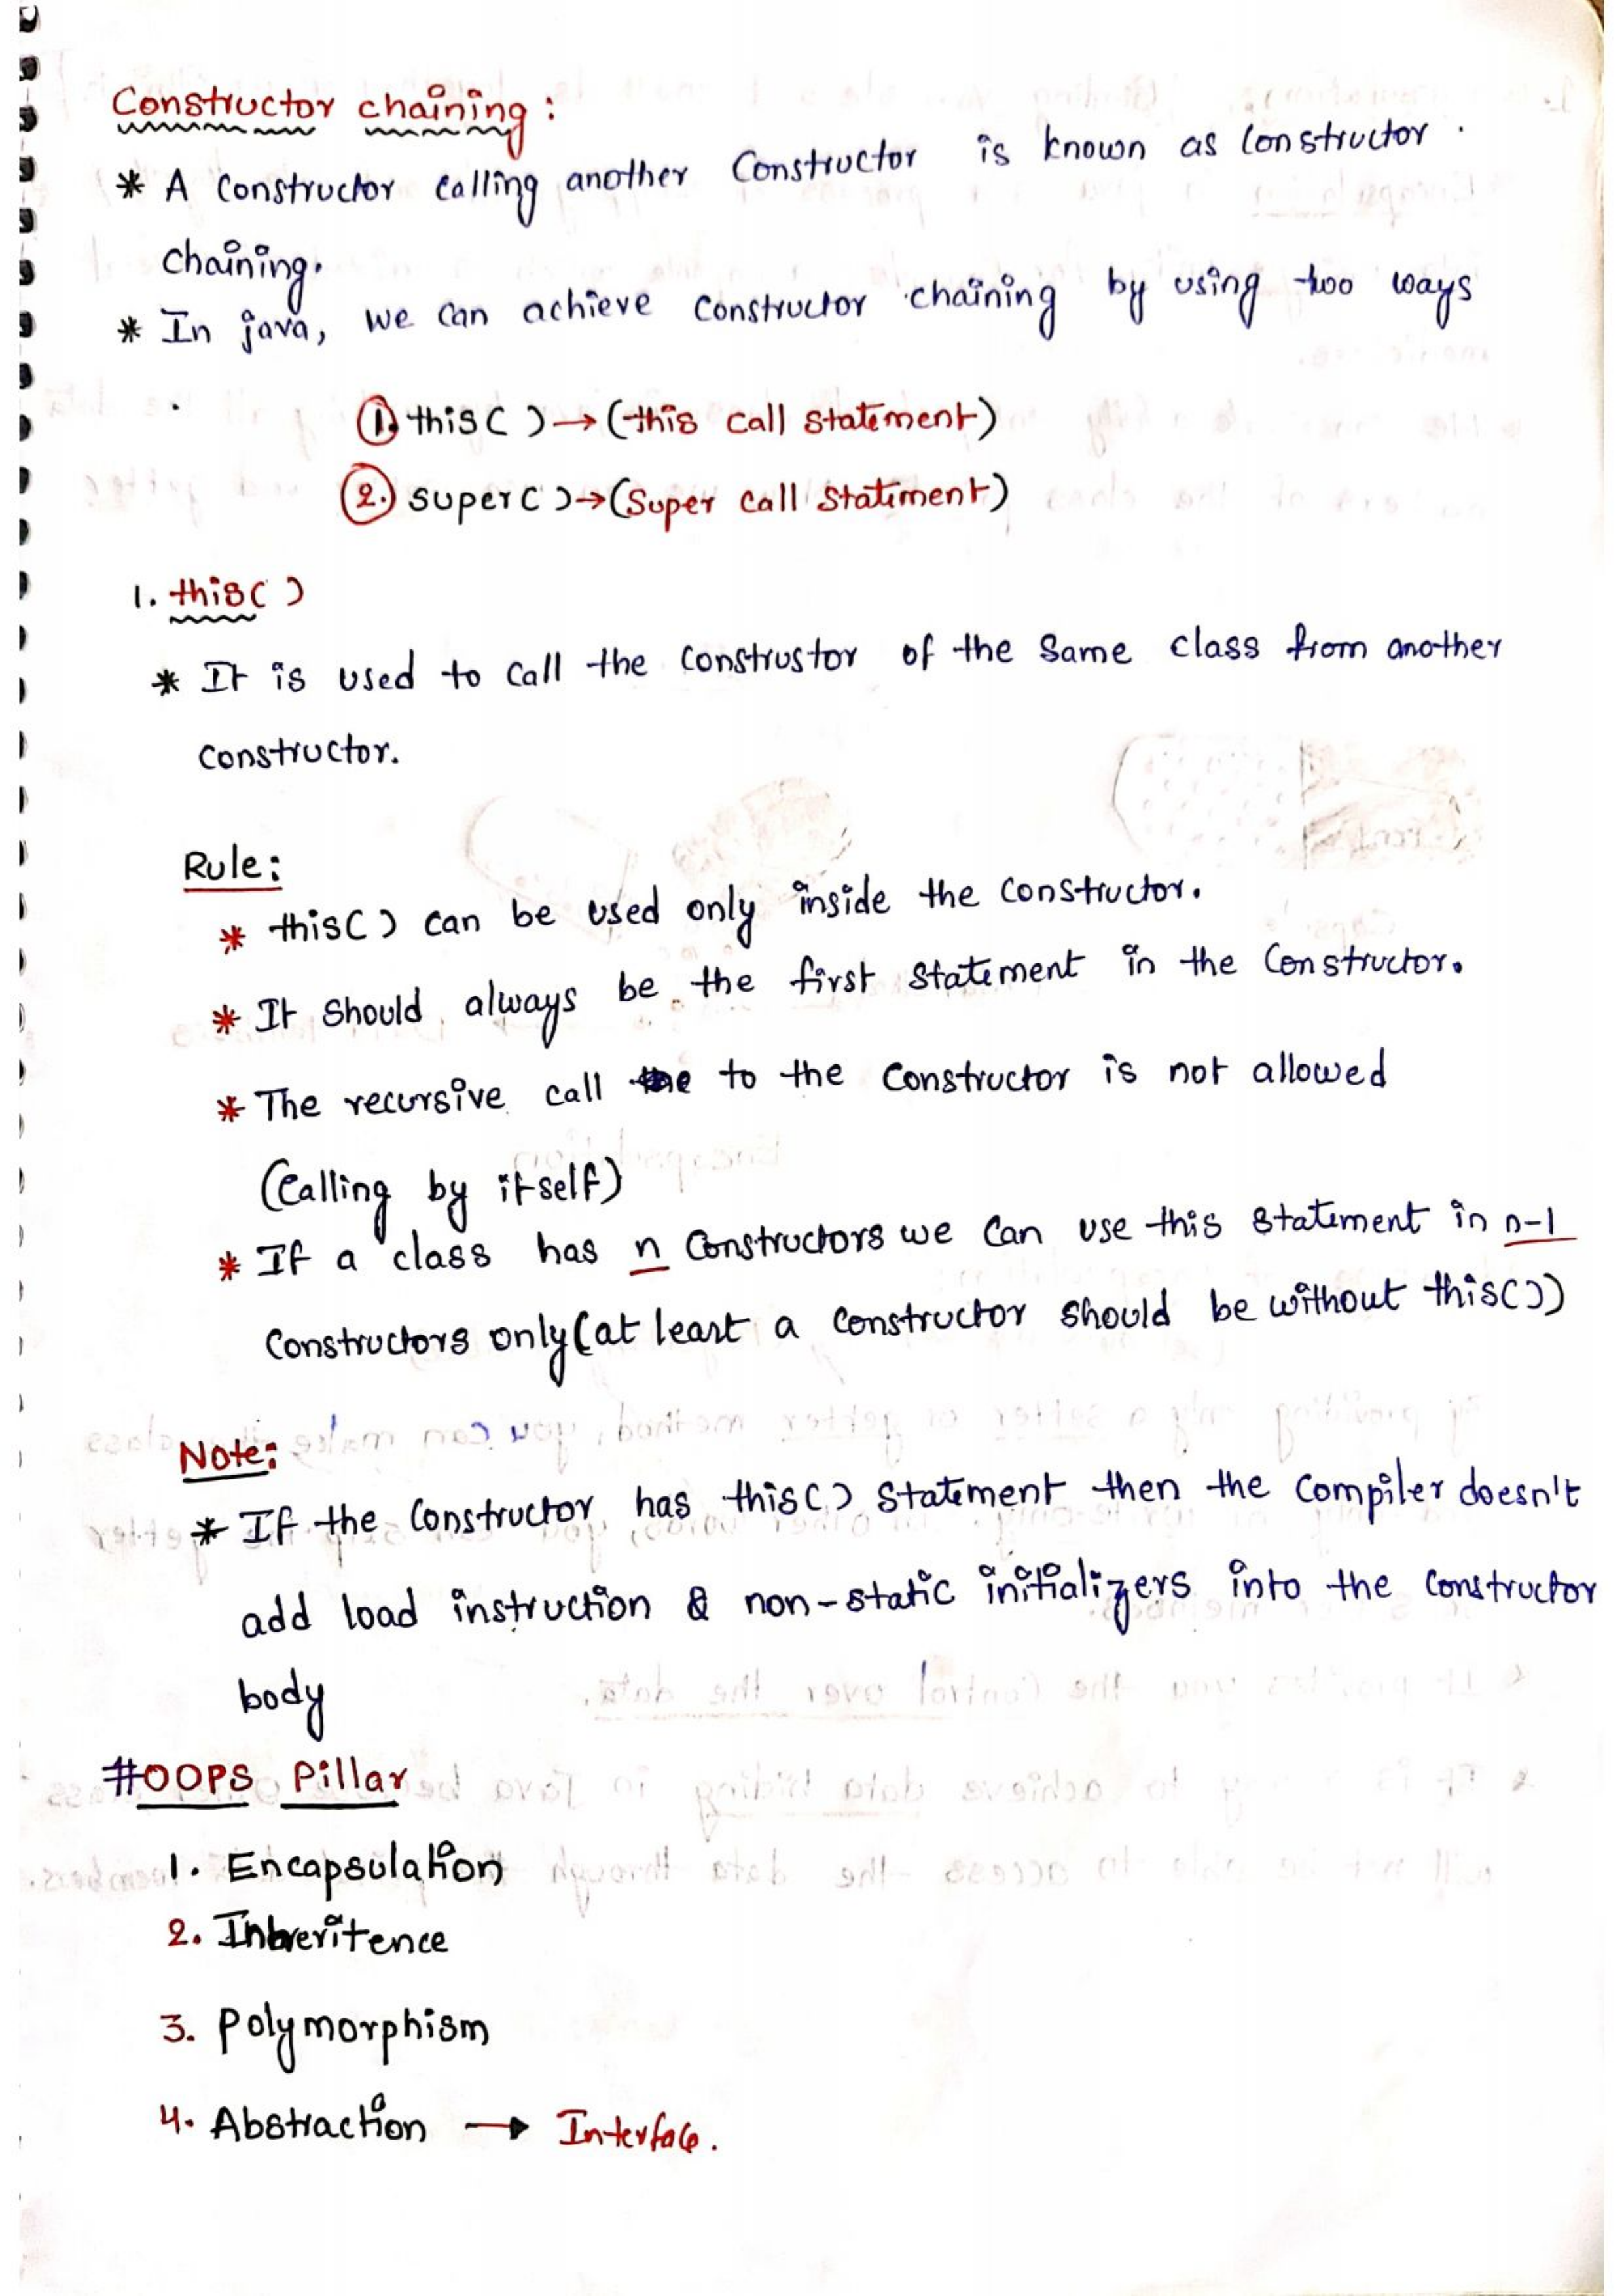 Constructor chaining :
* A Constructor calling another Constructor is known as Constructor
chaining.
* In java, we can achieve Constructor chaining by using two ways
1. this( ) → (this call statement)
2. super( ) → (Super call Statement)
1. this( )
* It is used to call the construstor of the same class from another
constructor.
Rule:
* this( ) can be used only inside the constructor.
* It should always be the first statement in the Constructor.
* The recursive call to the constructor is not allowed
(Calling by itself)
* If a class has n Constructors we can use this statement in n-1
Constructors only (at least a constructor should be without this( ))
Note:
* If the Constructor has this( ) statement then the compiler doesn't
add load instruction & non-static initializers into the constructor
body
#OOPS Pillar
1. Encapsulation
2. Inheritence
3. Polymorphism
4. Abstraction → Interface.